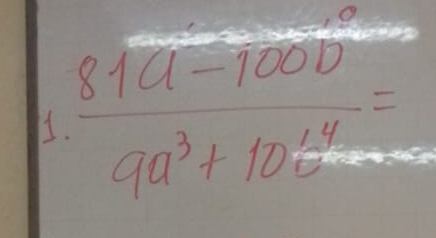 1. (81a - 100b⁸) / (9a³ + 10b⁴) =